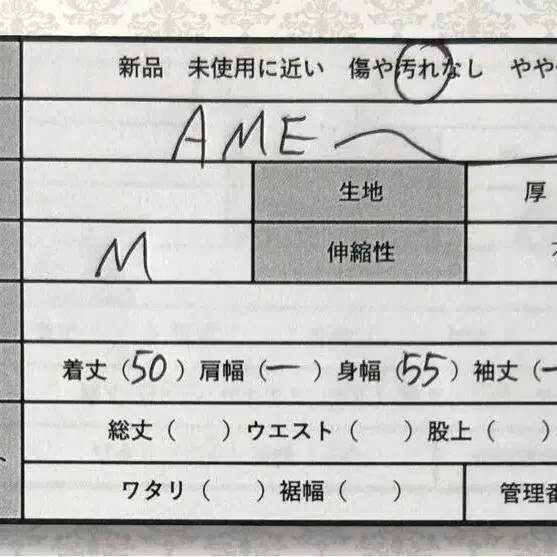 新品 未使用に近い 傷や汚れなし やや
AME
生地 厚
M 伸縮性
着丈（50）肩幅（ー）身幅（55）袖丈（ー
総丈（ ）ウエスト（ ）股上（ ）
ワタリ（ ）裾幅（ ） 管理番